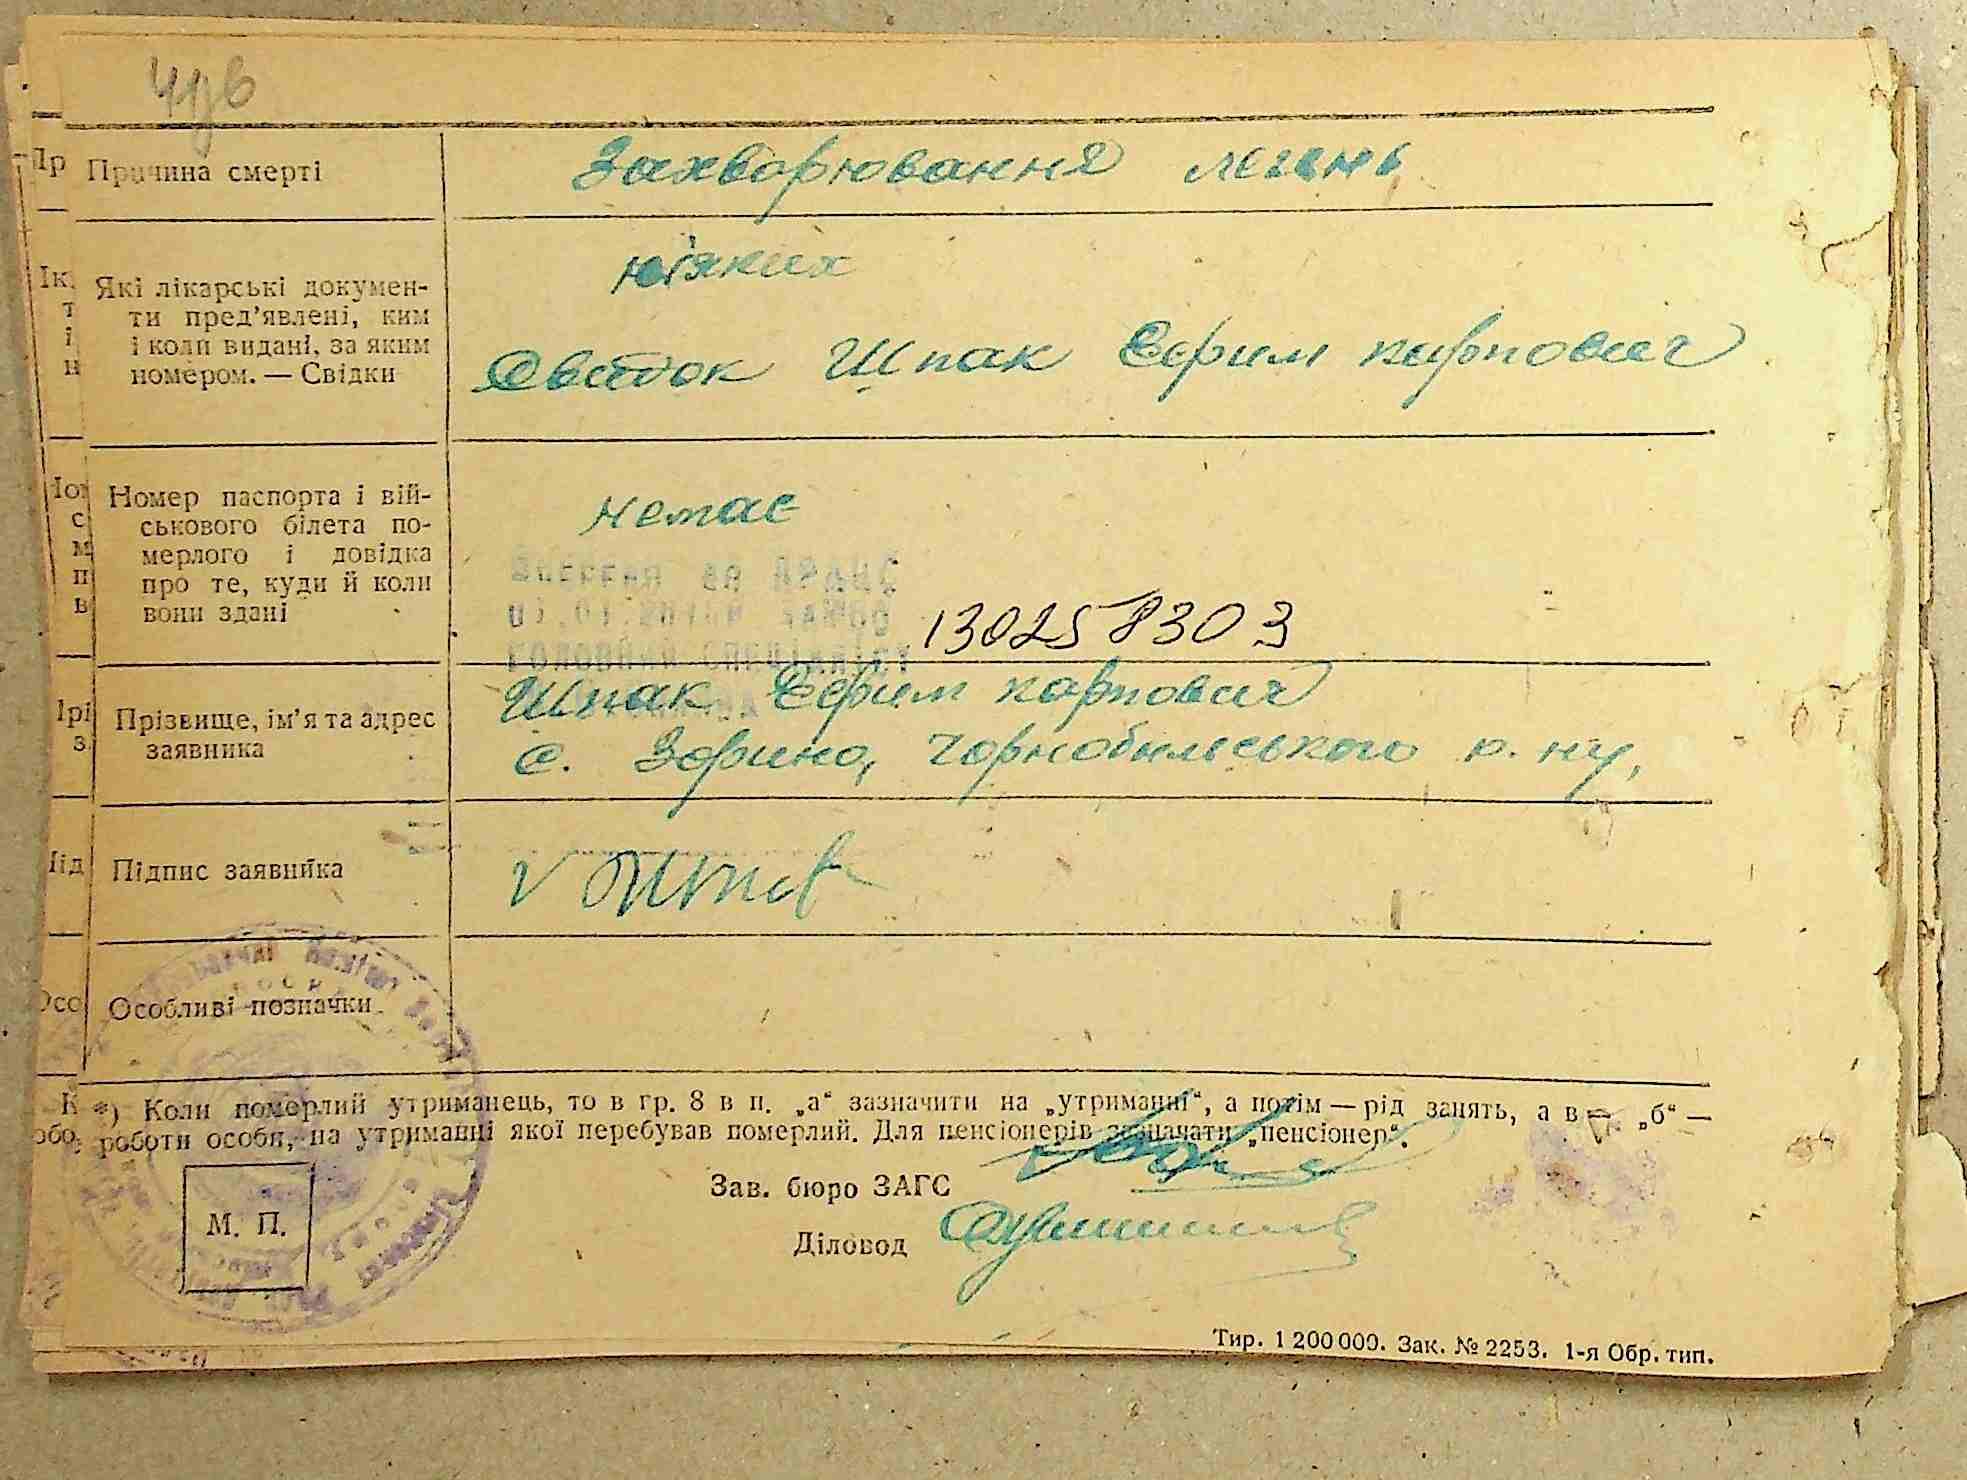 Причина смерті
Захворювання легень
Які лікарські докумен-
ти пред'явлені, ким
і коли видані, за яким
номером. — Свідки
ніяких
Свідок Шпак Єфрим Карпович
Номер паспорта і вій-
ськового білета по-
мерлого і довідка
про те, куди й коли
вони здані
немає
130258303
Прізвище, ім'я та адрес
заявника
Шпак Єфрим Карпович
с. Зорино, Чорнобильського р. ну,
Підпис заявника
Особливі позначки
*) Коли померлий утриманець, то в гр. 8 в п. „а“ зазначити на „утриманні“, а потім — рід занять, а в п. „б“ —
роботи особи, на утриманні якої перебував померлий. Для пенсіонерів зазначати „пенсіонер“.
Зав. бюро ЗАГС
Діловод
М. П.
Тир. 1 200 000. Зак. № 2253. 1-я Обр. тип.